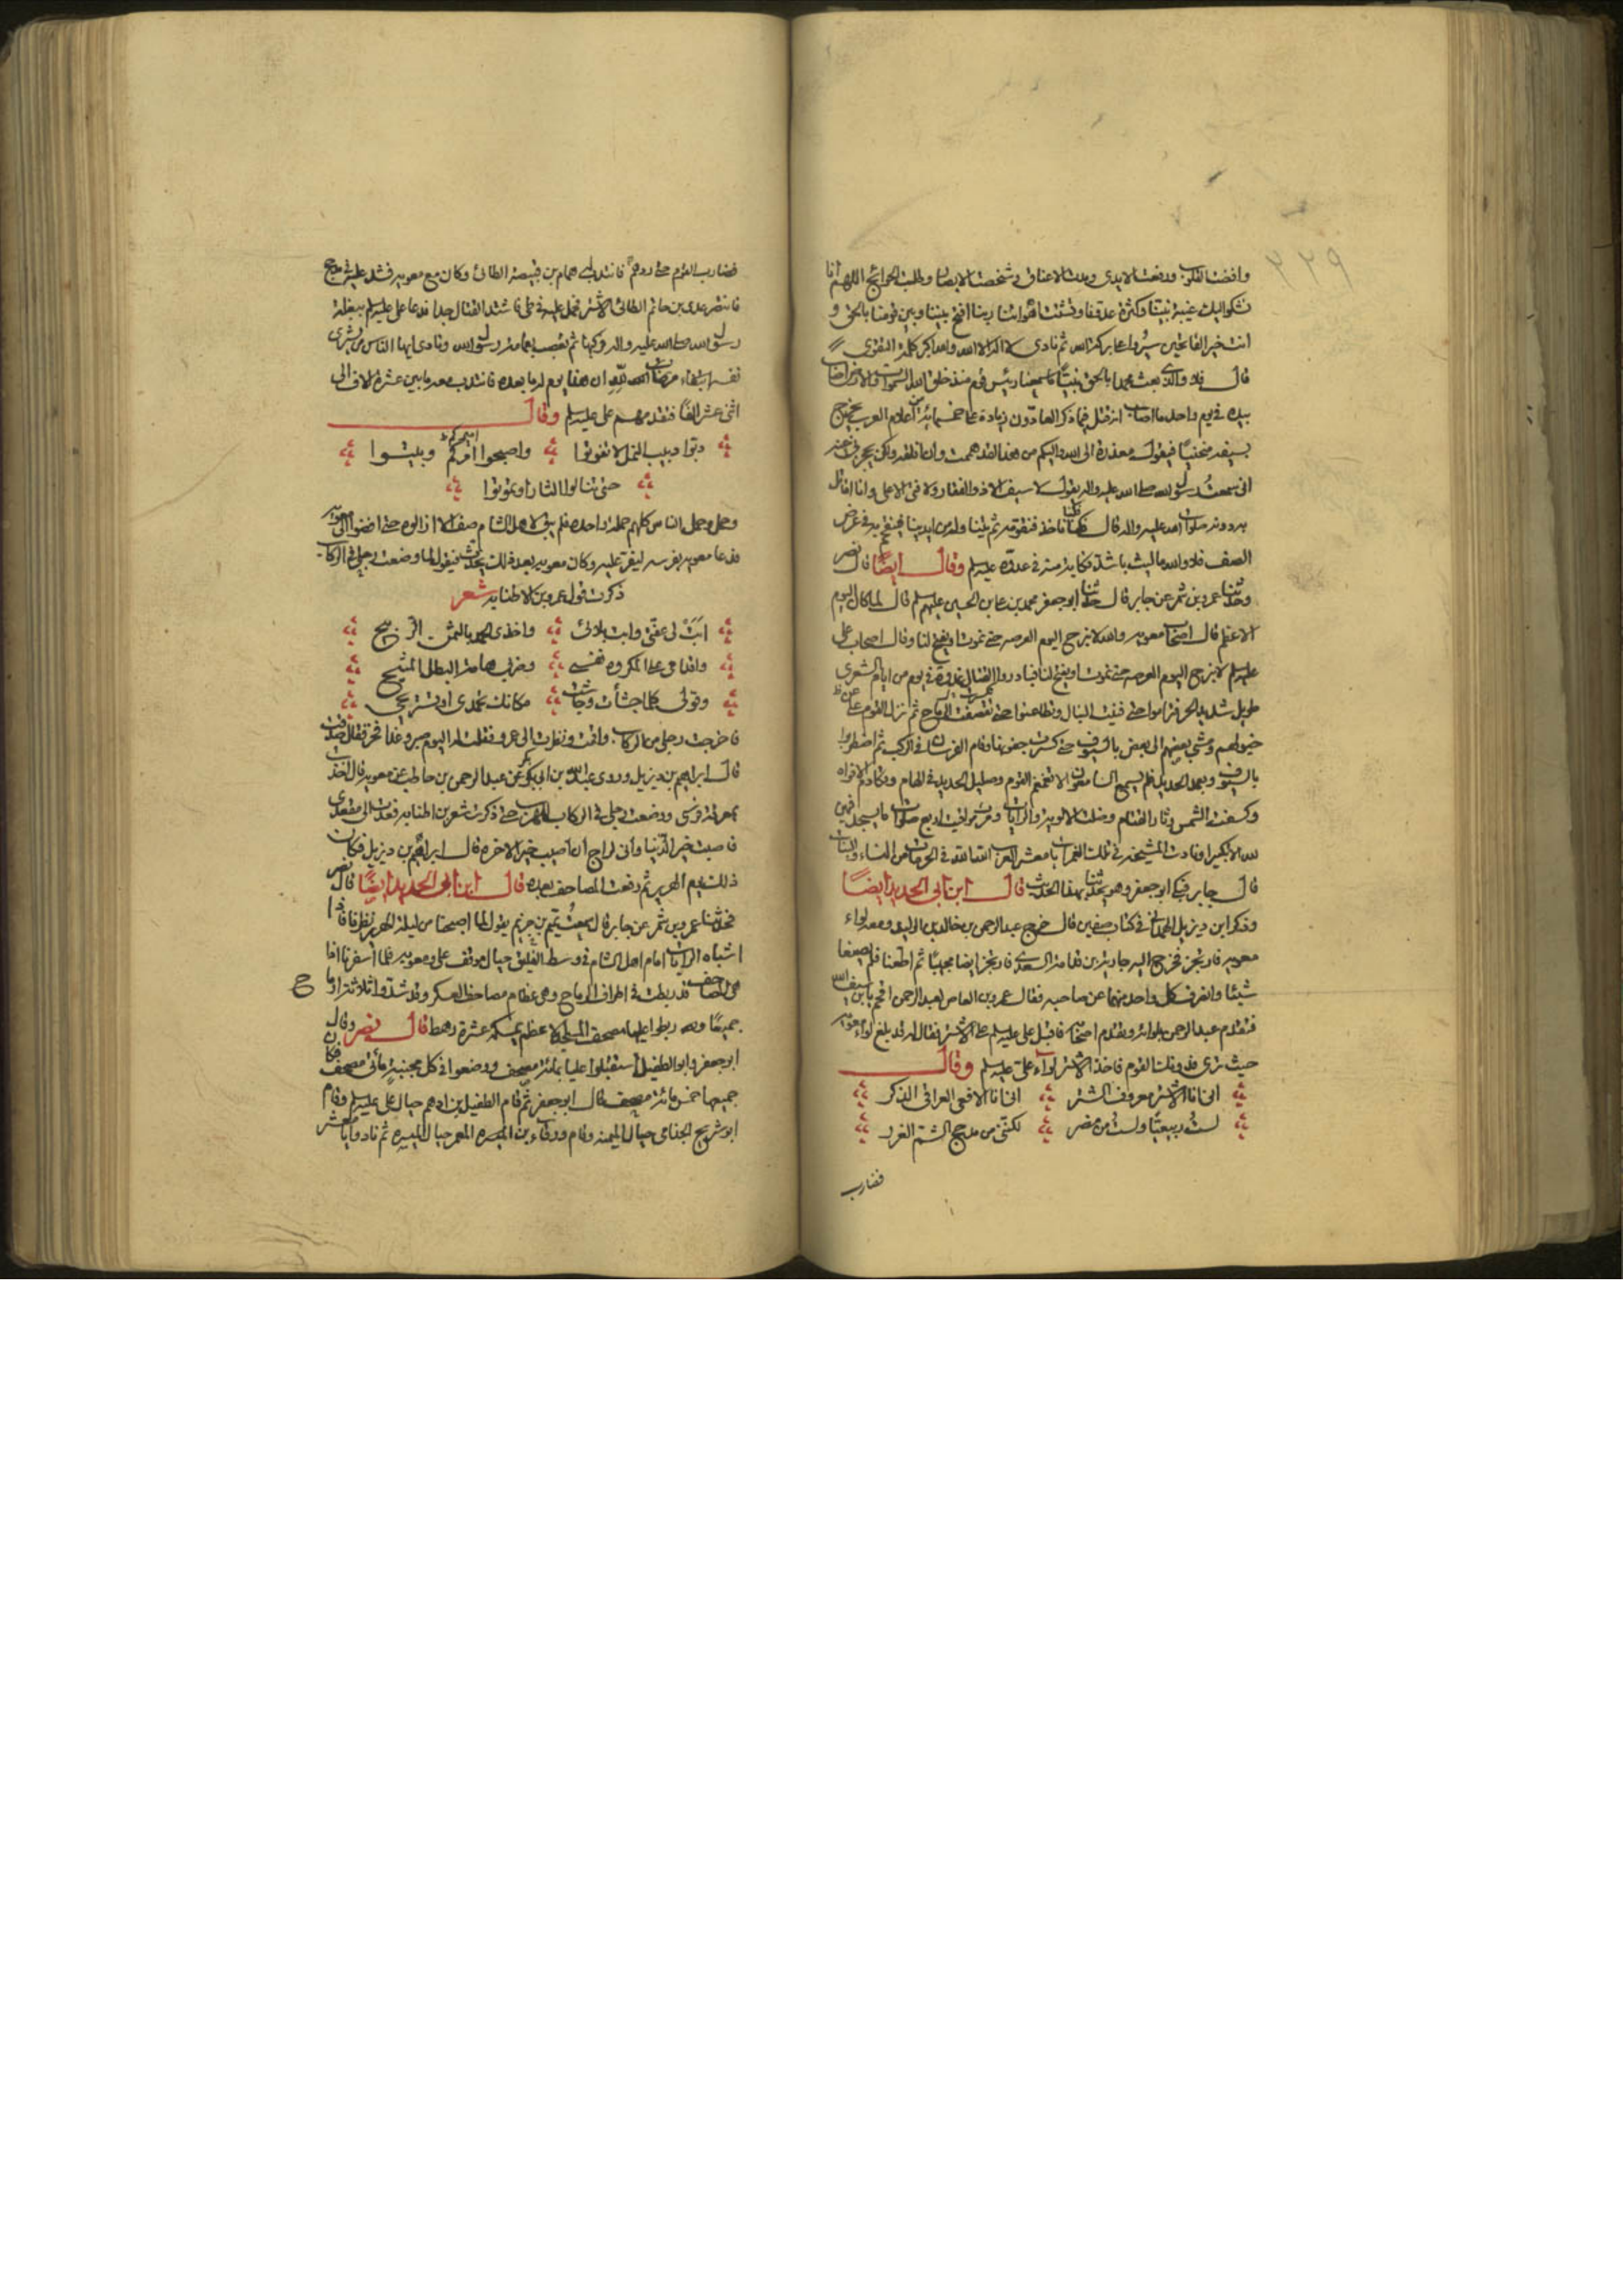 ٣٣٩
وافضت القلوب ورفعت الايدى ومدت الاعناق وشخصت الابصار وطلبت الحوائج اللهم انا
نشكوا اليك غيبة نبينا وكثرة عدونا وتشتت اهوائنا ربنا افتح بيننا وبين قومنا بالحق و
انت خير الفاتحين سيروا على بركة الله ثم نادى لا اله الا الله والله اكبر كلمة التقوى
قال فلا والذى بعث محمدا بالحق نبيا ما سمعنا رئيس قوم منذ خلق الله السموات والارض اصاب
بيده فى يوم واحد ما اصاب انه قتل فيما ذكر العادون زيادة على خمسمائة من اعلام العرب يخرج
بسيفه منحنيا فيقول معذرة الى الله واليكم من هذا لقد هممت وان افلقه ولكن يحجزنى عنه
انى سمعت رسول الله صلى الله عليه واله يقول لا سيف الا ذو الفقار ولا فتى الا على وانا اقاتل
به دونه صلوات الله عليه واله قال فكنا ناخذه فنقومه ثم يتناوله من ايدينا فيقتحم به فى عرض
الصف فلا والله ما ليث باشد نكاية منه فى عدوه عليه سلم وقال ايضاً قال نصر
وحدثنا عمرو بن شمر عن جابر قال حدثنا ابو جعفر محمد بن على بن الحسين عليهم سلم قال لما كان اليوم
الاعظم قال اصحاب معويه والله لا نبرح اليوم العرصه حتى نموت او يفتح لنا وقال اصحاب على
عليه سلم لا نبرح اليوم العرصه حتى نموت او يفتح لنا فبادروا القتال غدوة فى يوم من ايام الشعرى
طويل شديد الحر فتراموا حتى فنيت النبال وتطاعنوا حتى تقصفت الرماح ثم نزل القوم عن
خيولهم ومشى بعضهم الى بعض بالسيوف حتى كسرت جفونها وقام الفرسان فى الركب ثم اضطربوا
بالسيوف وبعمد الحديد فلم يسمع السامعون الا تغمغم القوم وصليل الحديد فى الهام وتكادم الافواه
وكسفت الشمس وثار القتام وضلت الالوية والرايات ومرت مواقيت اربع صلوات ما يسجد فيهن
لله الا تكبيرا ونادت المشيخة فى تلك الغمرات يا معشر العرب الله الله فى الحرمات من النساء والبنات
قال جابر فبكى ابو جعفر وهو يحدثنا بهذا الحديث قال ابن ابى الحديد ايضاً
وذكر ابن ديزيل الهمدانى فى كتاب صفين قال خرج عبد الرحمن بن خالد بن الوليد ومعه لواء
معويه فارتجز فخرج اليه جارية بن قدامة السعدى فارتجز ايضا مجيبا ثم اطعنا فلم يصنعا
شيئا وانصرف كل واحد منهما عن صاحبه فقال عمرو بن العاص لعبد الرحمن اقحم يا بن سيف الله
فتقدم عبد الرحمن بلوائه وتقدم اصحابه فاقبل على عليه سلم على الاشتر فقال له قد بلغ لواء معويه
حيث ترى فدونك القوم فاخذ الاشتر لواء على عليه سلم وقال
انى انا الاشتر معروف الشتر انى انا الافعى العراقى الذكر
لست ربيعيا ولست من مضر لكنى من مذحج الشم الغرر
فضارب
فضارب القوم حتى ردهم فانتدب له همام بن قبيصة الطائى وكان مع معويه فشد عليه فى مذحج
فانتصر عدى بن حاتم الطائى للاشتر فحمل عليه فى طى فاشتد القتال جدا فدعا على عليه سلم ببغلة
رسول الله صلى الله عليه واله فركبها ثم تعصب بعمامة رسول الله ونادى ايها الناس من يشرى
نفسه ابتغاء مرضات الله ان هذا يوم له ما بعده فانتدب معه ما بين عشرة الاف الى
اثنى عشر الفاً فتقدمهم على عليه سلم وقال
دبوا دبيب النمل لا تفوتوا واصبحوا امركم وبيتوا
حتى تنالوا الثار او تموتوا
وحمل وحمل الناس كلهم حملة واحده فلم يبق لاهل الشام صف الا ازالوه حتى افضوا الى معويه
فدعا معويه بفرسه ليفر عليه وكان معويه بعد ذلك يحدث فيقول لما وضعت رجلى فى الركاب
ذكرت قول عمرو بن الاطنابه شعر
ابت لى عفتى وابى بلائى واخذى الحمد بالثمن الربيح
واقدامى على المكروه نفسى وضربى هامة البطل المشيح
وقولى كلما جشأت وجاشت مكانك تحمدى او تستريحى
فاخرجت رجلى من الركاب واقمت ونظرت الى عمرو فقلت له اليوم صبر وغدا فخر فقال صدقت
قال ابراهيم بن ديزيل وروى عبد الله بن ابى بكر عن عبد الرحمن بن حاطب عن معويه قال اخذت
بمعرفة فرسى ووضعت رجلى فى الركاب للهرب حتى ذكرت شعر بن اطنابه فعدت الى مقعدى
فاصبت خير الدنيا وانى لراج ان اصيب خير الاخره قال ابراهيم بن ديزيل فكان
ذلك يوم الهرير ثم رفعت المصاحف بعده قال ابن ابى الحديد ايضاً قال نصر
فحدثنا عمرو بن شمر عن جابر قال سمعت تميم بن حزيم يقول لما اصبحنا من ليلة الهرير نظرنا فاذا
اشباه الرايات امام اهل الشام فى وسط الفيلق حيال موقف على ومعويه فلما اسفرنا اذا
هى المصاحف قد ربطت فى اطراف الرماح وهى عظام مصاحف العسكر وقد شدوا ثلاثة ارماح
جميعا وقد ربطوا عليها مصحف المسجد الاعظم يمسكه عشرة رهط قال نصر وقال
ابو جعفر وابو الطفيل استقبلوا عليا بمائة مصحف ووضعوا فى كل مجنبة مأتى مصحف فكان
جميعها خمسمائة مصحف قال ابو جعفر ثم قام الطفيل بن ادهم حيال على عليه سلم وقام
ابو شريح الجذامى حيال الميمنه وقام ورقاء بن المعمر حيال الميسره ثم نادوا يا معشر